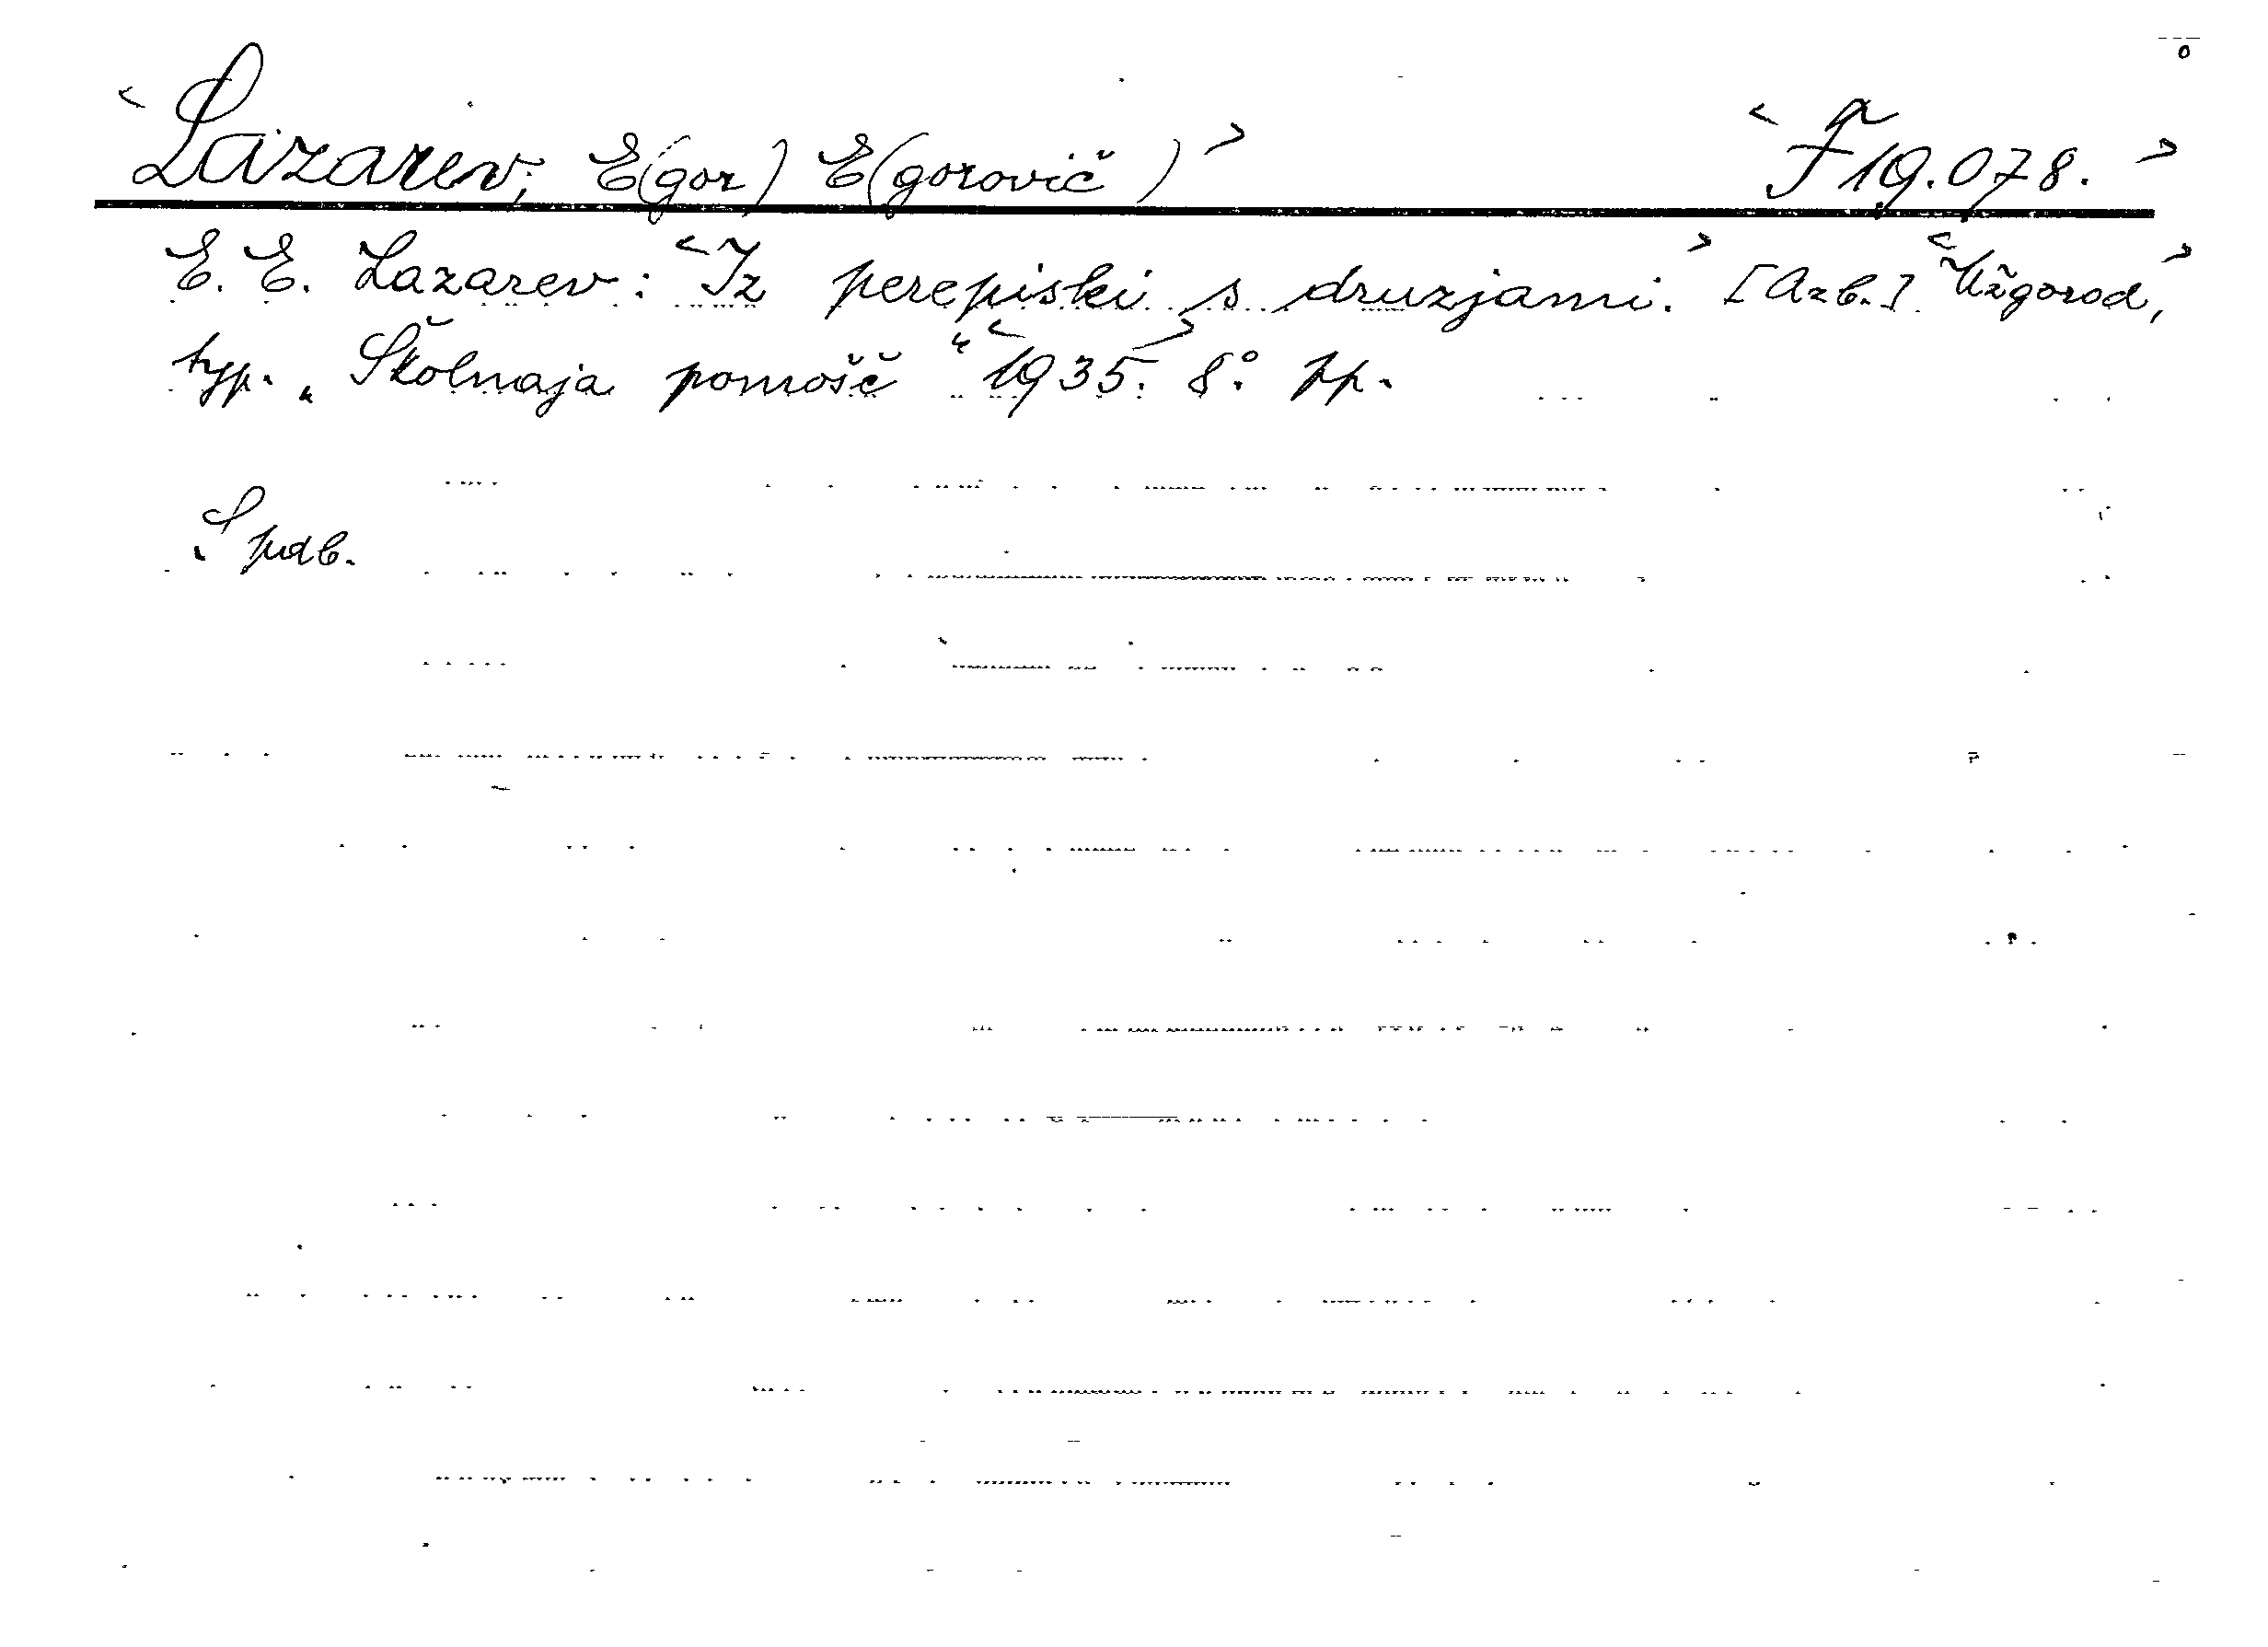 <Lazarev, E(gor) E(gorovič)> <F 19.078.>
E. E. Lazarev: <Iz perepiski s druzjami.> [Azb.] <Užgorod,>
typ. „Školnaja pomošč“ <1935.> 8°. pp.
S pdb.